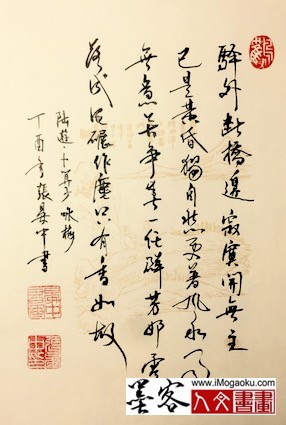 驿外断桥边寂寞開無主
已是黄昏獨自愁更著風和雨
無意苦争春一任群芳妒零
落成泥碾作塵只有香如故
陆遊·卜算子 咏梅
丁酉年張晏中書
墨客
www.iMogaoku.com
人文書畫